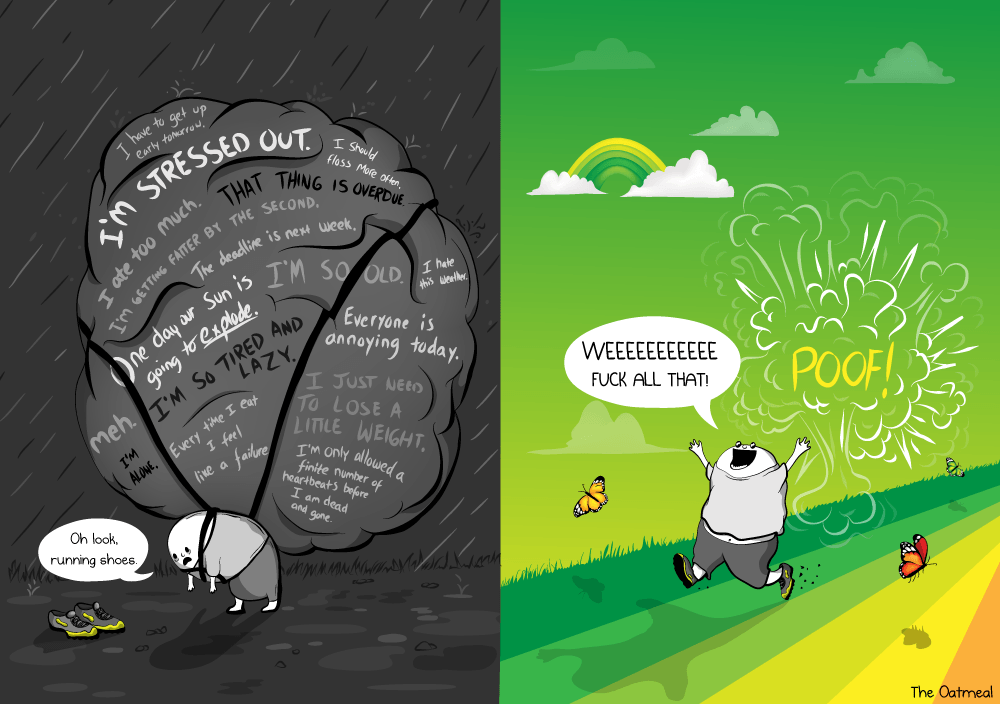 I have to get up
early tomorrow.
I'M STRESSED OUT.
I should
floss more often.
THAT THING IS OVERDUE.
I ate too much.
I'M GETTING FATTER BY THE SECOND.
The deadline is next week.
I'M SO OLD.
I hate
this weather.
One day our Sun is
going to explode.
Everyone is
annoying today.
I'M SO TIRED AND
LAZY.
I JUST NEED
TO LOSE A
LITTLE WEIGHT.
meh.
I'M
ALONE.
Every time I eat
I feel
like a failure
I'm only allowed a
finite number of
heartbeats before
I am dead
and gone.
Oh look,
running shoes.
WEEEEEEEEEEE
FUCK ALL THAT!
POOF!
The Oatmeal